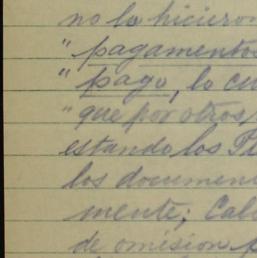 no la hicieron
" pagamentos
" pago, lo cu
" que por otros
estando los Pl
los documen
mente; Cals
de omision p